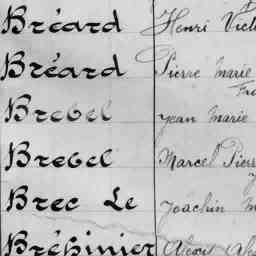 Bréard Henri Vict
Bréard Pierre Marie
Fra
Brebel Jean Marie
Brebel Marcel Pier
Brec Le Joachin M
Brépinier Alexis